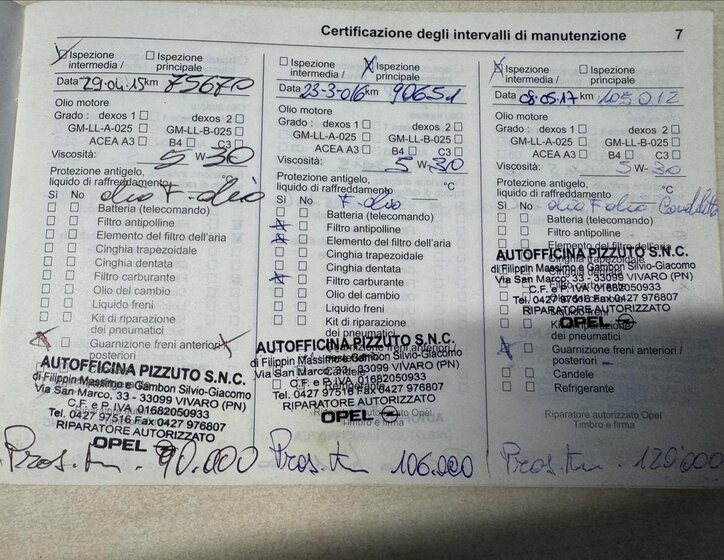 Certificazione degli intervalli di manutenzione 7
Ispezione intermedia / Ispezione principale
Data 29.04.15 km 75670
Olio motore
Grado : dexos 1 dexos 2
GM-LL-A-025 GM-LL-B-025
ACEA A3 B4 C3
Viscosità: 5 W 30
Protezione antigelo,
liquido di raffreddamento °C
olio F.olio
Sì No
Batteria (telecomando)
Filtro antipolline
Elemento del filtro dell'aria
Cinghia trapezoidale
Cinghia dentata
Filtro carburante
Olio del cambio
Liquido freni
Kit di riparazione
dei pneumatici
Guarnizione freni anteriori /
posteriori
AUTOFFICINA PIZZUTO S.N.C.
di Filippin Massimo e Gambon Silvio-Giacomo
Via San Marco, 33 - 33099 VIVARO (PN)
C.F. e P. IVA 01682050933
Tel. 0427 97516 Fax 0427 976807
RIPARATORE AUTORIZZATO
OPEL
Pros. Km 90.000
Ispezione intermedia / Ispezione principale
Data 23-3-016 km 90651
Olio motore
Grado : dexos 1 dexos 2
GM-LL-A-025 GM-LL-B-025
ACEA A3 B4 C3
Viscosità: 5 W-30
Protezione antigelo,
liquido di raffreddamento °C
F.olio
Sì No
Batteria (telecomando)
Filtro antipolline
Elemento del filtro dell'aria
Cinghia trapezoidale
Cinghia dentata
Filtro carburante
Olio del cambio
Liquido freni
Kit di riparazione
dei pneumatici
Guarnizione freni anteriori /
AUTOFFICINA PIZZUTO S.N.C.
di Filippin Massimo e Gambon Silvio-Giacomo
Via San Marco, 33 - 33099 VIVARO (PN)
C.F. e P. IVA 01682050933
Tel. 0427 97516 Fax 0427 976807
RIPARATORE AUTORIZZATO
Riparatore autorizzato Opel
Timbro e firma
OPEL
Pros. Km 106.000
Ispezione intermedia / Ispezione principale
Data 08.05.17 km 105.012
Olio motore
Grado : dexos 1 dexos 2
GM-LL-A-025 GM-LL-B-025
ACEA A3 B4 C3
Viscosità: 5 W-30
Protezione antigelo,
liquido di raffreddamento °C
olio F olio
Sì No
Batteria (telecomando)
Filtro antipolline
Elemento del filtro dell'aria
Cinghia trapezoidale
AUTOFFICINA PIZZUTO S.N.C.
di Filippin Massimo e Gambon Silvio-Giacomo
Via San Marco, 33 - 33099 VIVARO (PN)
C.F. e P. IVA 01682050933
Tel. 0427 97516 Fax 0427 976807
RIPARATORE AUTORIZZATO
OPEL
Guarnizione freni anteriori /
posteriori
Candele
Refrigerante
Riparatore autorizzato Opel
Timbro e firma
Pros. Km. 120000